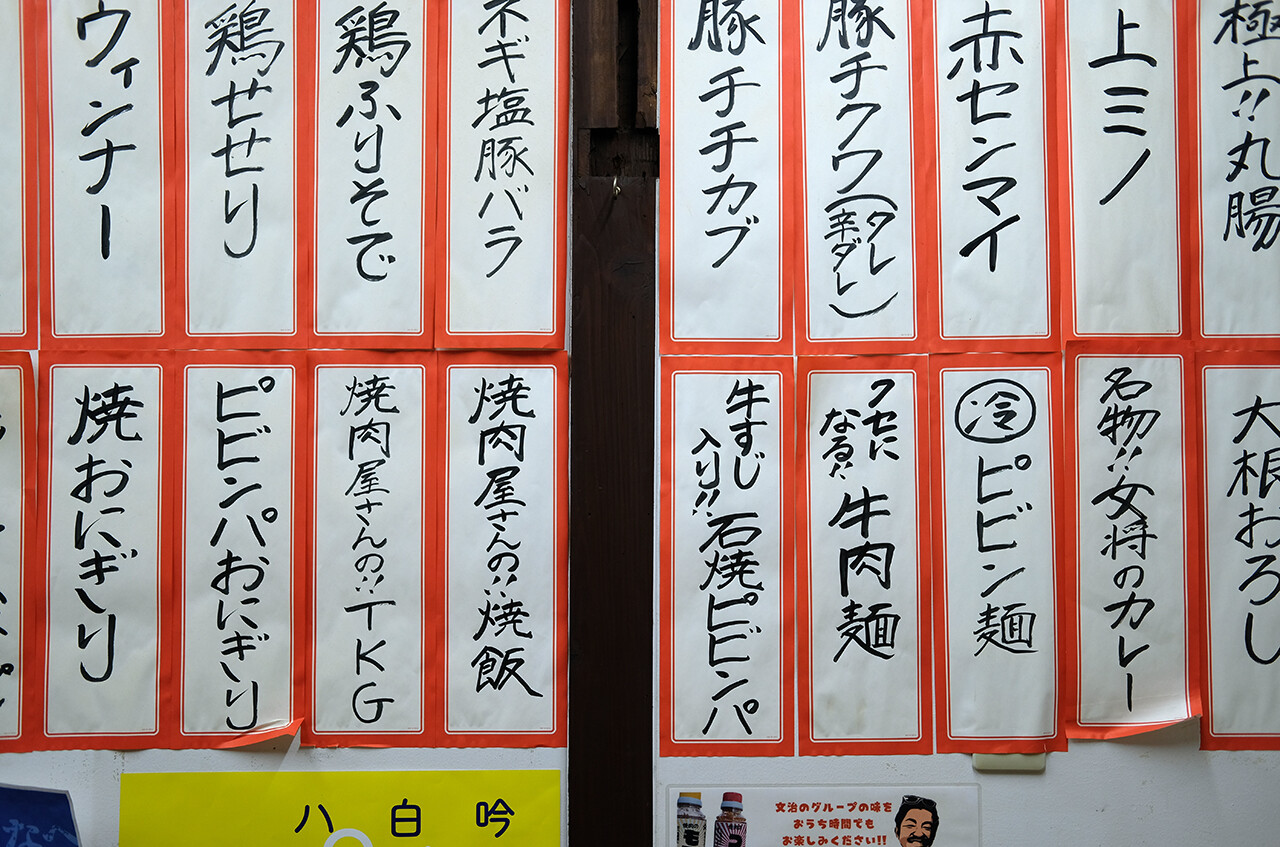 極上!!丸腸
上ミノ
赤センマイ
豚チクワ(タレ
辛ダレ)
豚チチカブ
ネギ塩豚バラ
鶏ふりそで
鶏せせり
ウィンナー
大根おろし
名物!!女将のカレー
冷ピビン麺
クセに
なる!!牛肉麺
牛すじ
入り!!石焼ピビンパ
焼肉屋さんの!!焼飯
焼肉屋さんの!!TKG
ピビンパおにぎり
焼おにぎり
八白吟
文治のグループの味を
おうち時間でも
お楽しみください!!